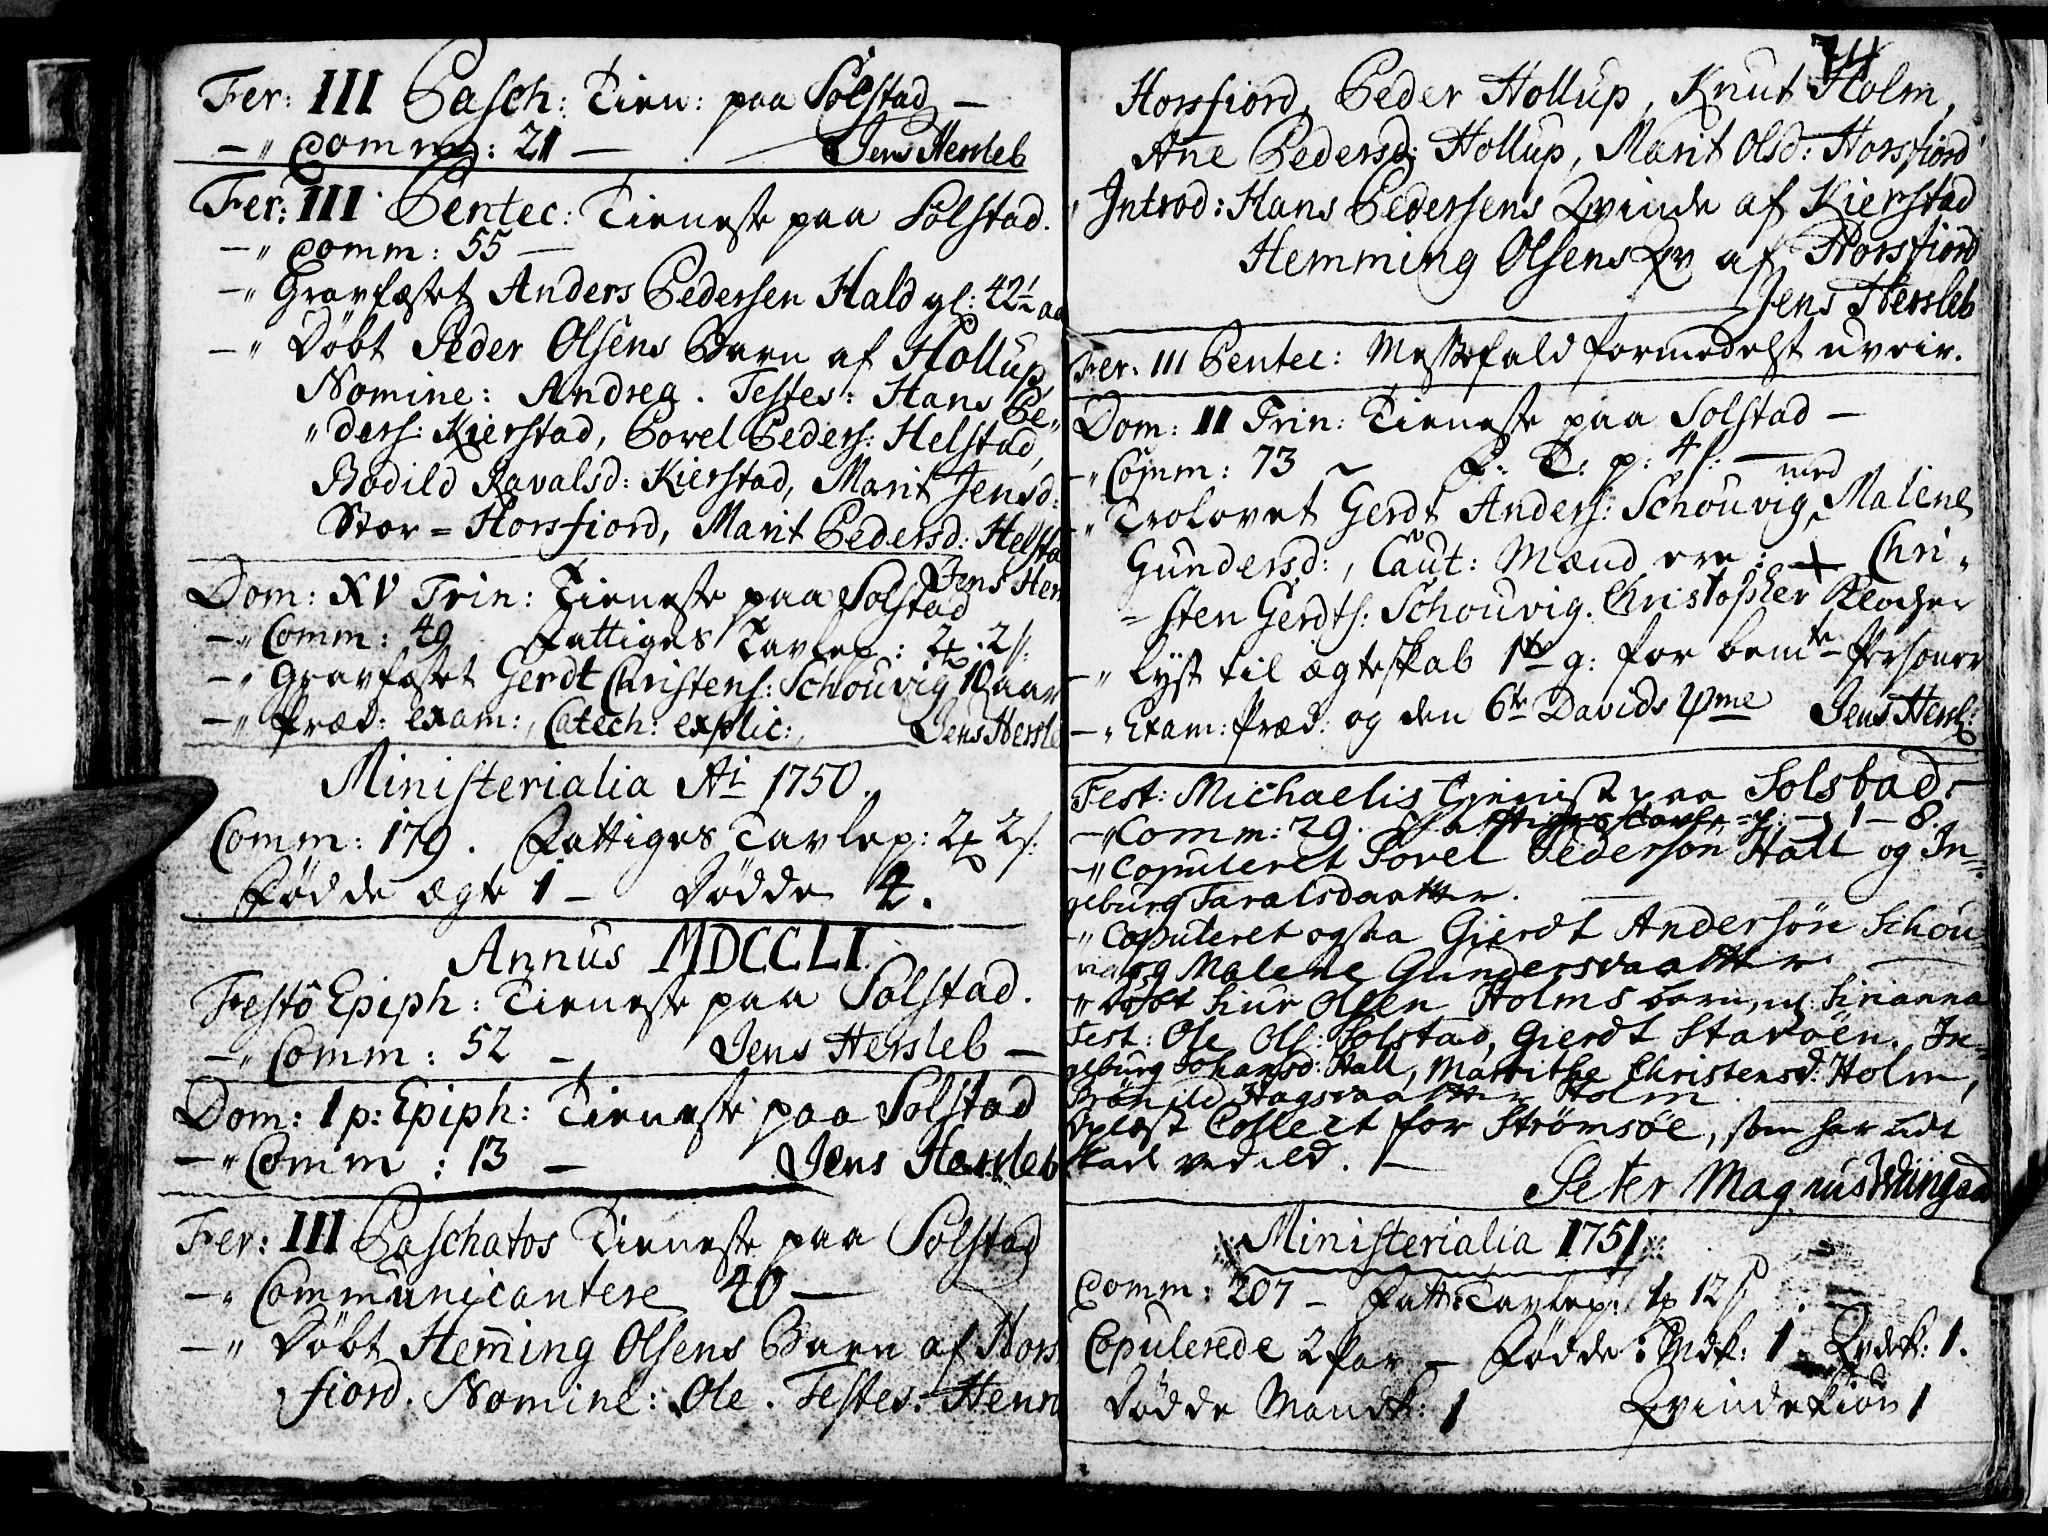 Fer: III Pasch: Tien: paa Solstad –
–„ Comm: 21 – Jens Hersleb
Fer: III Pentec: Tieneste paa Solstad.
–„ Comm: 55 –
–„ Gravfæstet Anders Pedersen Hald gl: 42½ aa
–„ Døbt Peder Olsens Barn af Hollup,
Nomine: Andrea. Testes: Hans Pe„
„ders: Kierstad, Povel Peders: Helstad,
Bodild Ravalsd: Kierstad, Marit Jensd:
Stor=Horsfiord, Marit Pedersd: Helsta
Jens Her
Dom: XV Trin: Tieneste paa Solstad
–„ Comm: 49 Fattiges Tavlep: 2 2ſ:
–„ Gravfæstet Gerdt Christens: Schouvig 12 aar
–„ Præd: exam:, Catech: explic: Jens Hersle
Ministerialia Ai 1750.
Comm: 179. Fattiges Tavlep: 2 2ſ:
Fødde ægte 1 – Dødde 2.
Annus MDCCLI.
Festô Epiph: Tieneste paa Solstad.
–„ Comm: 52 – Jens Hersleb –
Dom: 1 p: Epiph: Tieneste paa Solstad
–„ Comm: 13 – Jens Hersleb
Fer: III Paschatos Tieneste paa Solstad
–„ Communicantere 40 –
–„ Døbt Hem̅ing Olsens Barn af Hors
fiord. Nomine: Ole. Testes: Henr
74
Horsfiord, Peder Hollup, Knut Holm,
Ane Pedersd: Hollup, Marit Olsd: Horsfiord
„ Introd: Hans Pedersens Qvinde af Kierstad
Hemming Olsens Qv af Horsfiord
Jens Hersleb
Fer: III Pentec: Messefald formedelst uveir.
Dom: II Trin: Tieneste paa Solstad –
–„ Comm: 73 ~ F: T: p: 4ſ: –
–„ Trolovet Gerdt Anders: Schouvig med Malene
Gundersd:, Caut: Mænd ere: + Chri„
=sten Gerdts: Schouvig. Christopher Klocher
–„ lyst til ægteskab 1te g: for bemte Personer
–„ Exam: Præd: og den 6te Davids ψme Jens Hersl:
Fest: Michaelis Tienist paa Solstad –
–„ Comm: 29. Fattiges tavle p: – 1 – 8.
–„ Copuleret Povel Pederson Hall og In=
geburg Taralsdaatter.
–„ Copuleret ogsaa Gierdt Andersøn Schou=
vig og Malene Gundersdaatter. –
–„ Døbt Siur Olsen Holms barn, n: Sirianna
Test: Ole Ols: Solstad, Gierdt Stavøen. In=
geburg Johansd: Hall, Marrithe Christensd: Holm,
Brønild Hagsdaatter Holm.
Oplæst Collect for Strømsøe, som har lidt
skade ved ild. –
Peter Magnus Wiingaa
Ministerialia 1751
Comm: 207 – Fatt: Tavlep: 1 12ſ
Copulerede 2 Par – Fødde: Mdk: 1. Qvdk: 1.
Dødde Mandk: 1 Qvindekiøn 1